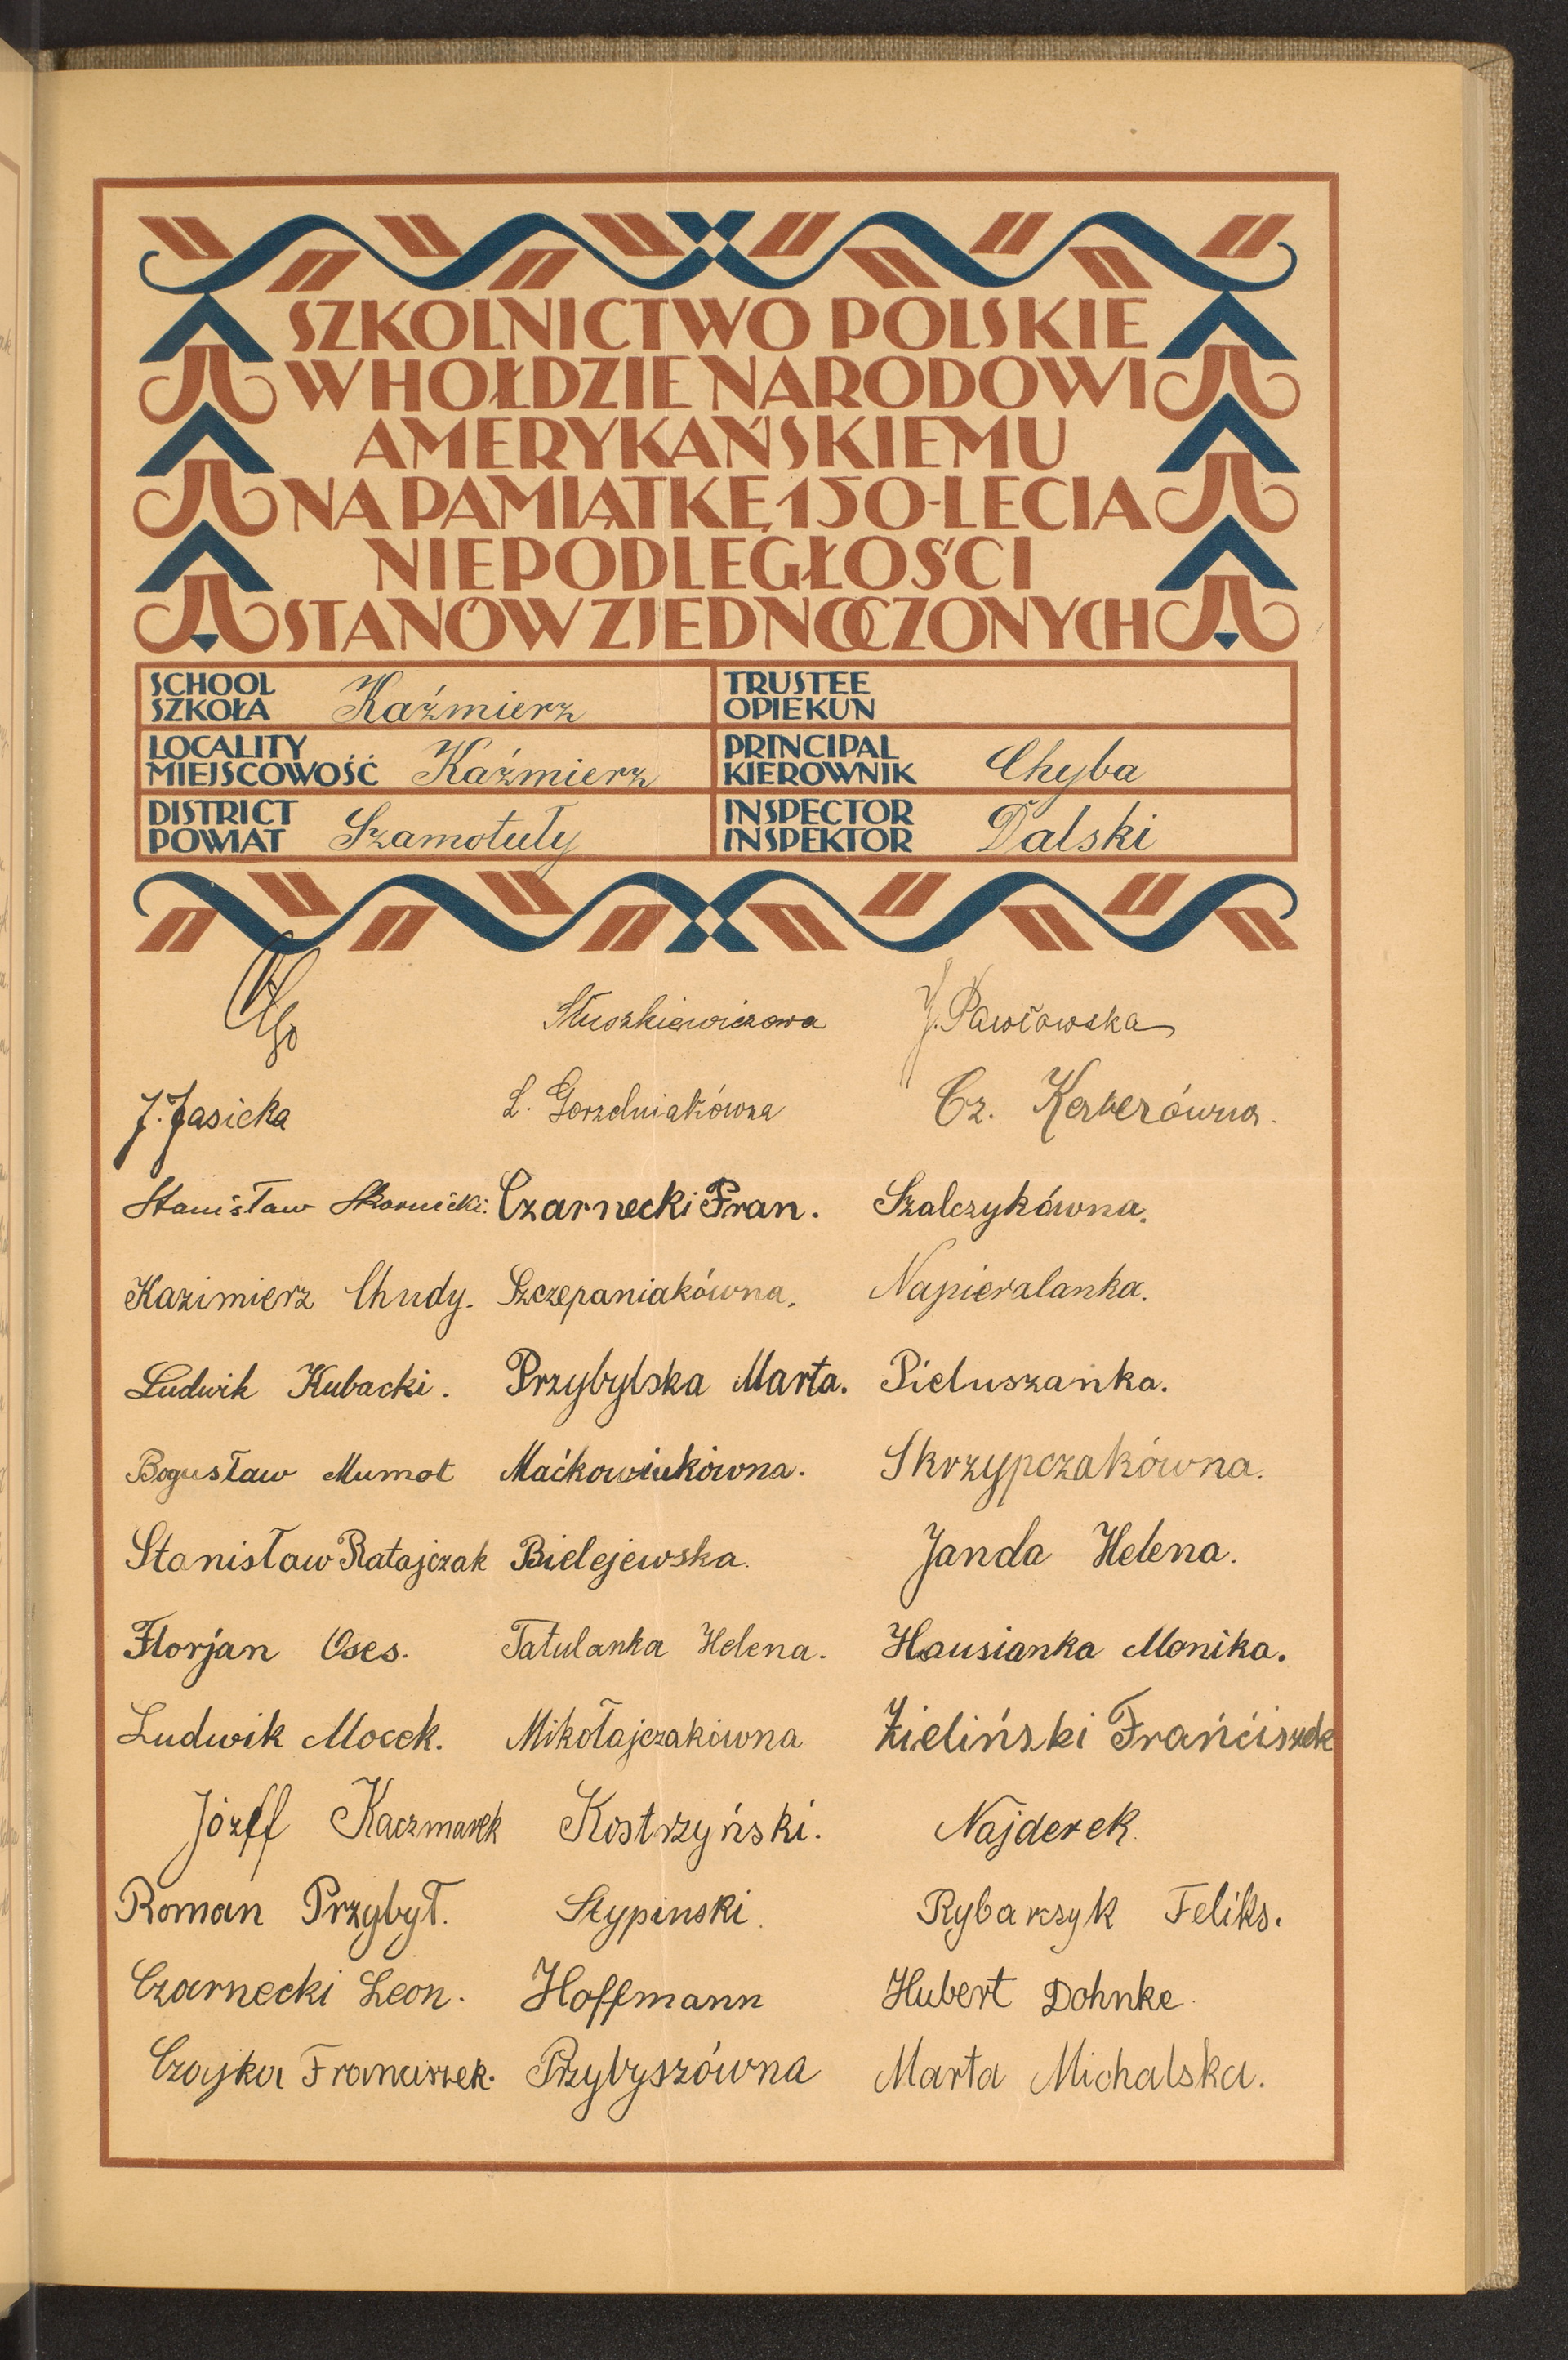 SZKOLNICTWO POLSKIE
W HOŁDZIE NARODOWI
AMERYKAŃSKIEMU
NA PAMIĄTKĘ 150-LECIA
NIEPODLEGŁOŚCI
STANÓW ZJEDNOCZONYCH
SCHOOL
SZKOŁA Kaźmierz
TRUSTEE
OPIEKUN
LOCALITY
MIEJSCOWOŚĆ Kaźmierz
PRINCIPAL
KIEROWNIK Chyba
DISTRICT
POWIAT Szamotuły
INSPECTOR
INSPEKTOR Dalski
Słuszkiewiczowa J. Pawłowska
J. Jasicka L. Gorzelniakówna Cz. Kerberówna.
Stanisław Skornicki. Czarnecki Fran. Szalczykówna.
Kazimierz Chudy. Szczepaniakówna. Napieralanka.
Ludwik Kubacki. Przybylska Marta. Pieluszanka.
Bogusław Mumot Maćkowiakówna. Skrzypczakówna.
Stanisław Ratajczak Bielejewska. Janda Helena.
Florjan Oses. Tatulanka Helena. Hausianka Monika.
Ludwik Mocek. Mikołajczakówna Zieliński Frańciszek
Józef Kaczmarek Kostrzyński. Najderek.
Roman Przybył. Stypinski. Rybarczyk Feliks.
Czarnecki Leon. Hoffmann Hubert Dohnke.
Czajka Franciszek. Przybyszówna Marta Michalska.